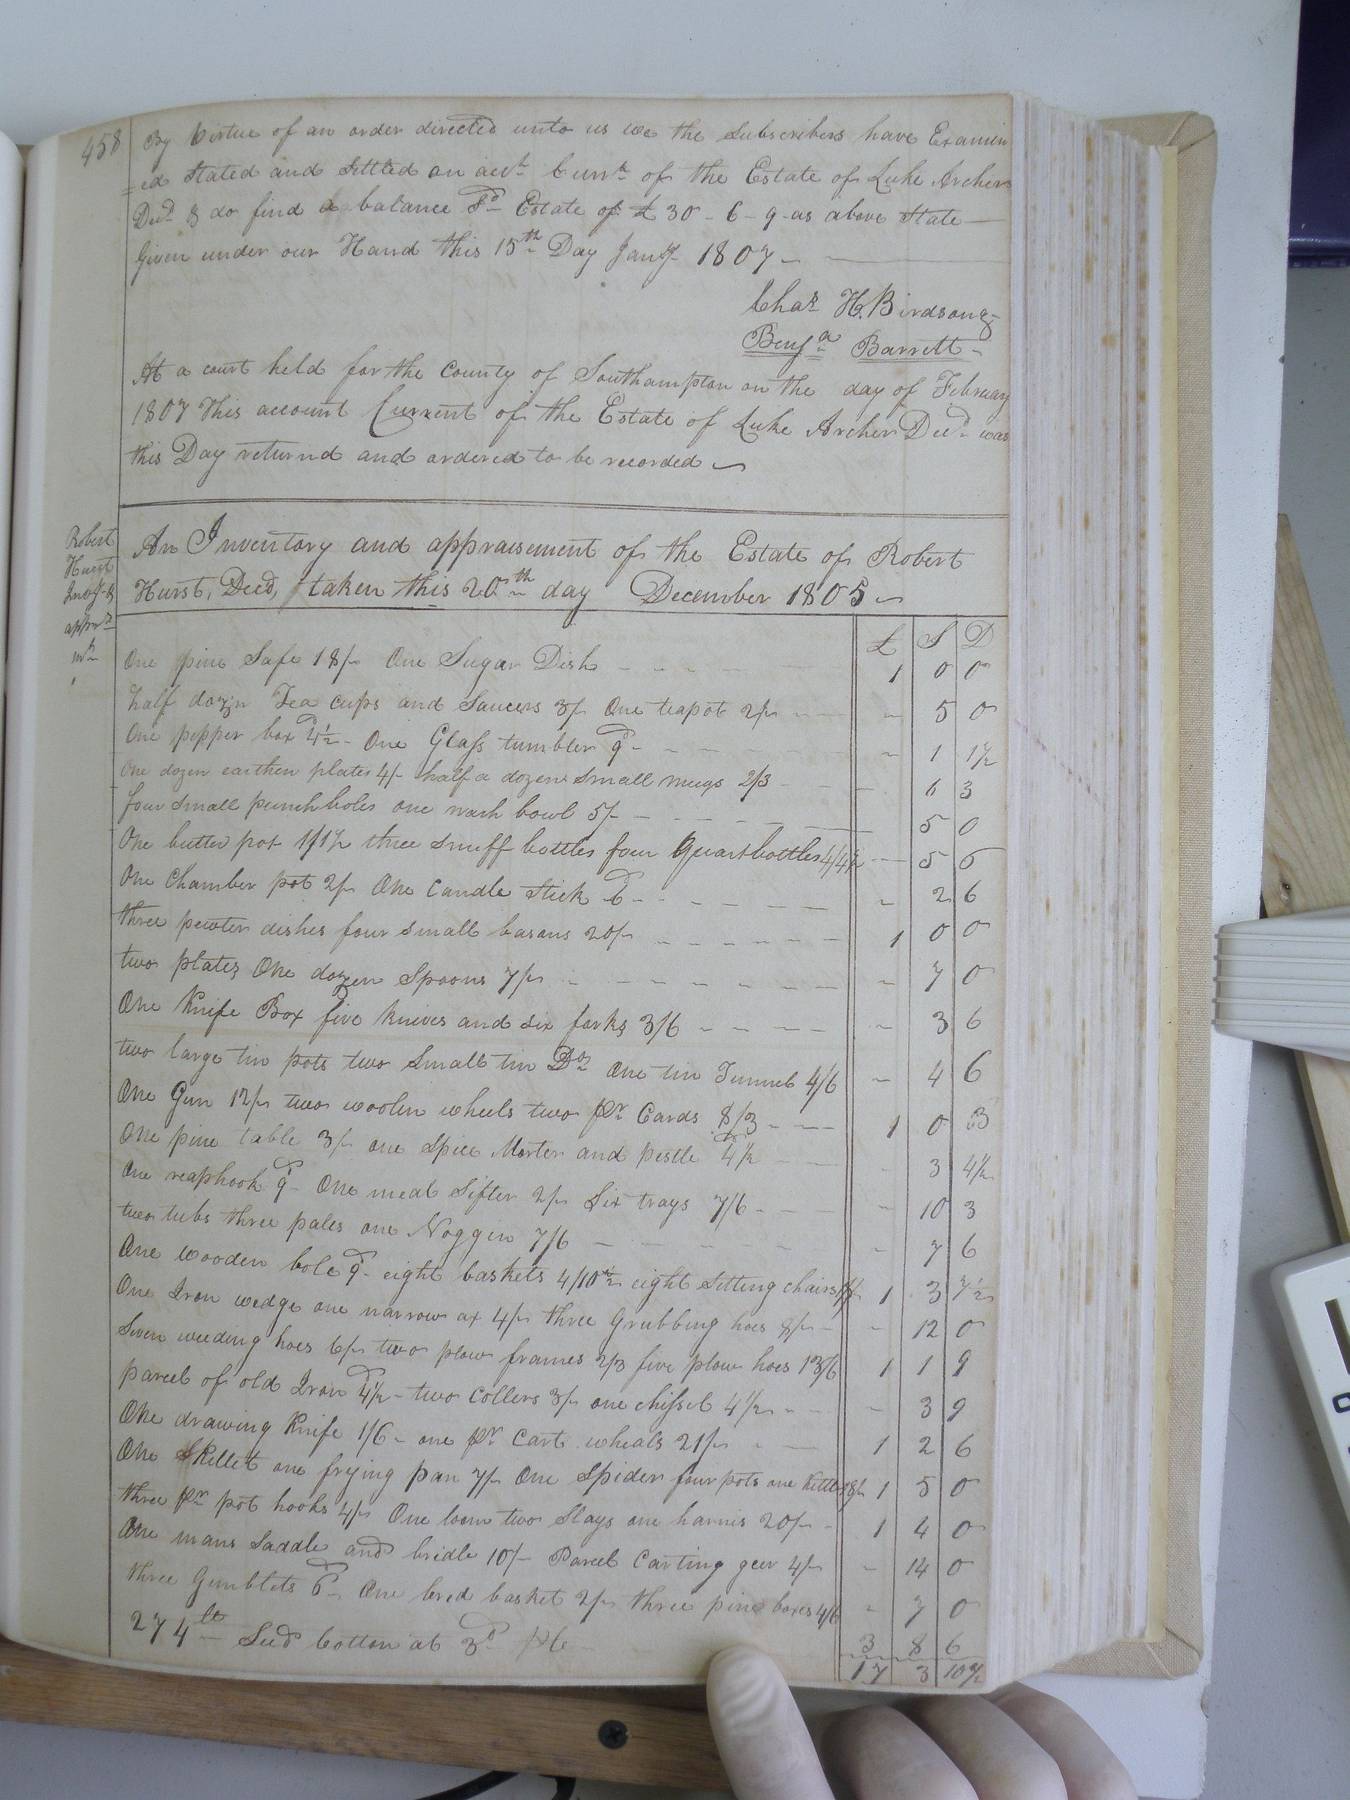 458
By Virtue of an order directed unto us we the Subscribers have Examin
=ed Stated and Settled an acct. Curr.t of the Estate of Luke Archer
Decd. & do find a balance Sd. Estate of £ 30 - 6 - 9 - as above State
Given under our Hand this 15th Day Jany. 1807 -
Chas. H. Birdsong
Benja. Barrett
At a court held for the County of Southampton on the day of February
1807 This account Current of the Estate of Luke Archer Decd. was
this Day returnd and ordered to be recorded
Robert
Hurst
Invy. &
appras
mt.
An Inventory and appraisement of the Estate of Robert
Hurst, Decd, taken this 20th day December 1805
£ S D
One pine Safe 18/- One Sugar Dish - - - 1 0 0
half dozn Tea cups and Saucers 3/- One teapot 2/- - - 5 0
One pepper box 4½d - One Glass tumbler 9d - - - 1 1½
One dozen earthen plates 4/- half a dozen small mugs 2/3 - - 6 3
four small punch boles one wash bowl 5/- - - 5 0
One butter pot 1/1½ three snuff bottles four Quart bottles 4/4½ - 5 6
One Chamber pot 2/- One Candle Stick 6d - - - 2 6
three pewter dishes four small basons 20/- - - 1 0 0
two plates One dozen Spoons 7/- - - - 7 0
One Knife Box five knives and six forks 3/6 - - - 3 6
two large tin pots two Small tin Do. One tin Tunnel 4/6 - 4 6
One Gun 12/- two woolen wheels two pr. Cards 8/3 - - 1 0 3
One pine table 3/- one Spice Morter and pestle 4½d - - 3 4½
One reaphook 9d - One meal Sifter 2/- Six trays 7/6 - - 10 3
two tubs three pales one Noggin 7/6 - - - 7 6
One wooden bole 9d - eight baskets 4/10½ eight Sitting chairs 1 3 7½
One Iron wedge one narrow ax 4/- three Grubbing hoes 8/- - - 12 0
Seven weeding hoes 6/- two plow frames 2/3 five plow hoes 13/6 1 1 9
parcel of old Iron 4½d - two Collers 3/- one chissel 4½ - - - 3 9
One drawing Knife 1/6 - one pr. Cart wheals 21/- - - 1 2 6
One Skillet one frying pan 7/- One Spider four pots one kettle 18/- 1 5 0
three pr. pot hooks 4/- One loom two Slays one harnis 20/- - 1 4 0
One mans Saddle and bridle 10/- Parcel Carting geer 4/- - 14 0
three Gimblets 6d - One bred basket 2/- three pine boxes 4/6 - 7 0
274 lb - Seed Cotton at 3d - 3 8 6
17 3 10½